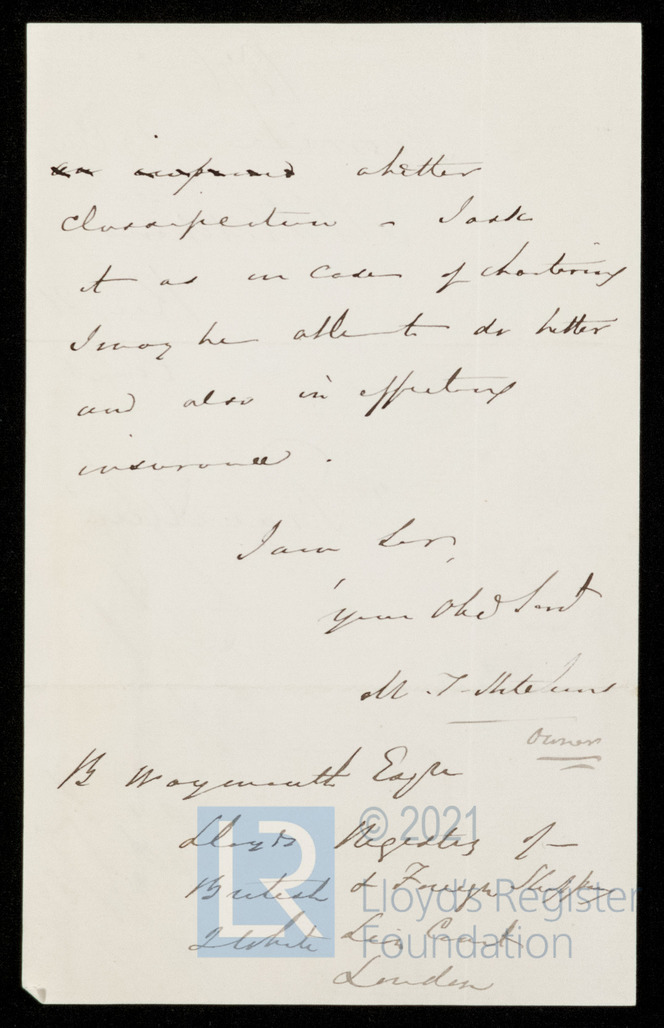 an improved a better
Classification - I ask
it as in case of chartering
I may be able to do better
and also in effecting
insurance.
I am Sir,
Your Obed Servt
M. T. Hitchens
Owner
B Waymouth Esqre
Lloyds Register of
British & Foreign Shipping
2 White Lion Court
London
© 2021
Lloyd's Register
Foundation
LR